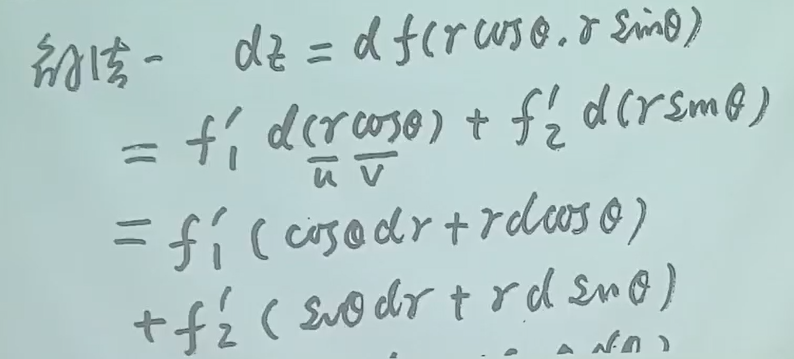 解法一 dz = d f(r cosθ, r sinθ)
= f₁′ d(r cosθ) + f₂′ d(r sinθ)
u v
= f₁′ (cosθ dr + r d cosθ)
+ f₂′ (sinθ dr + r d sinθ)